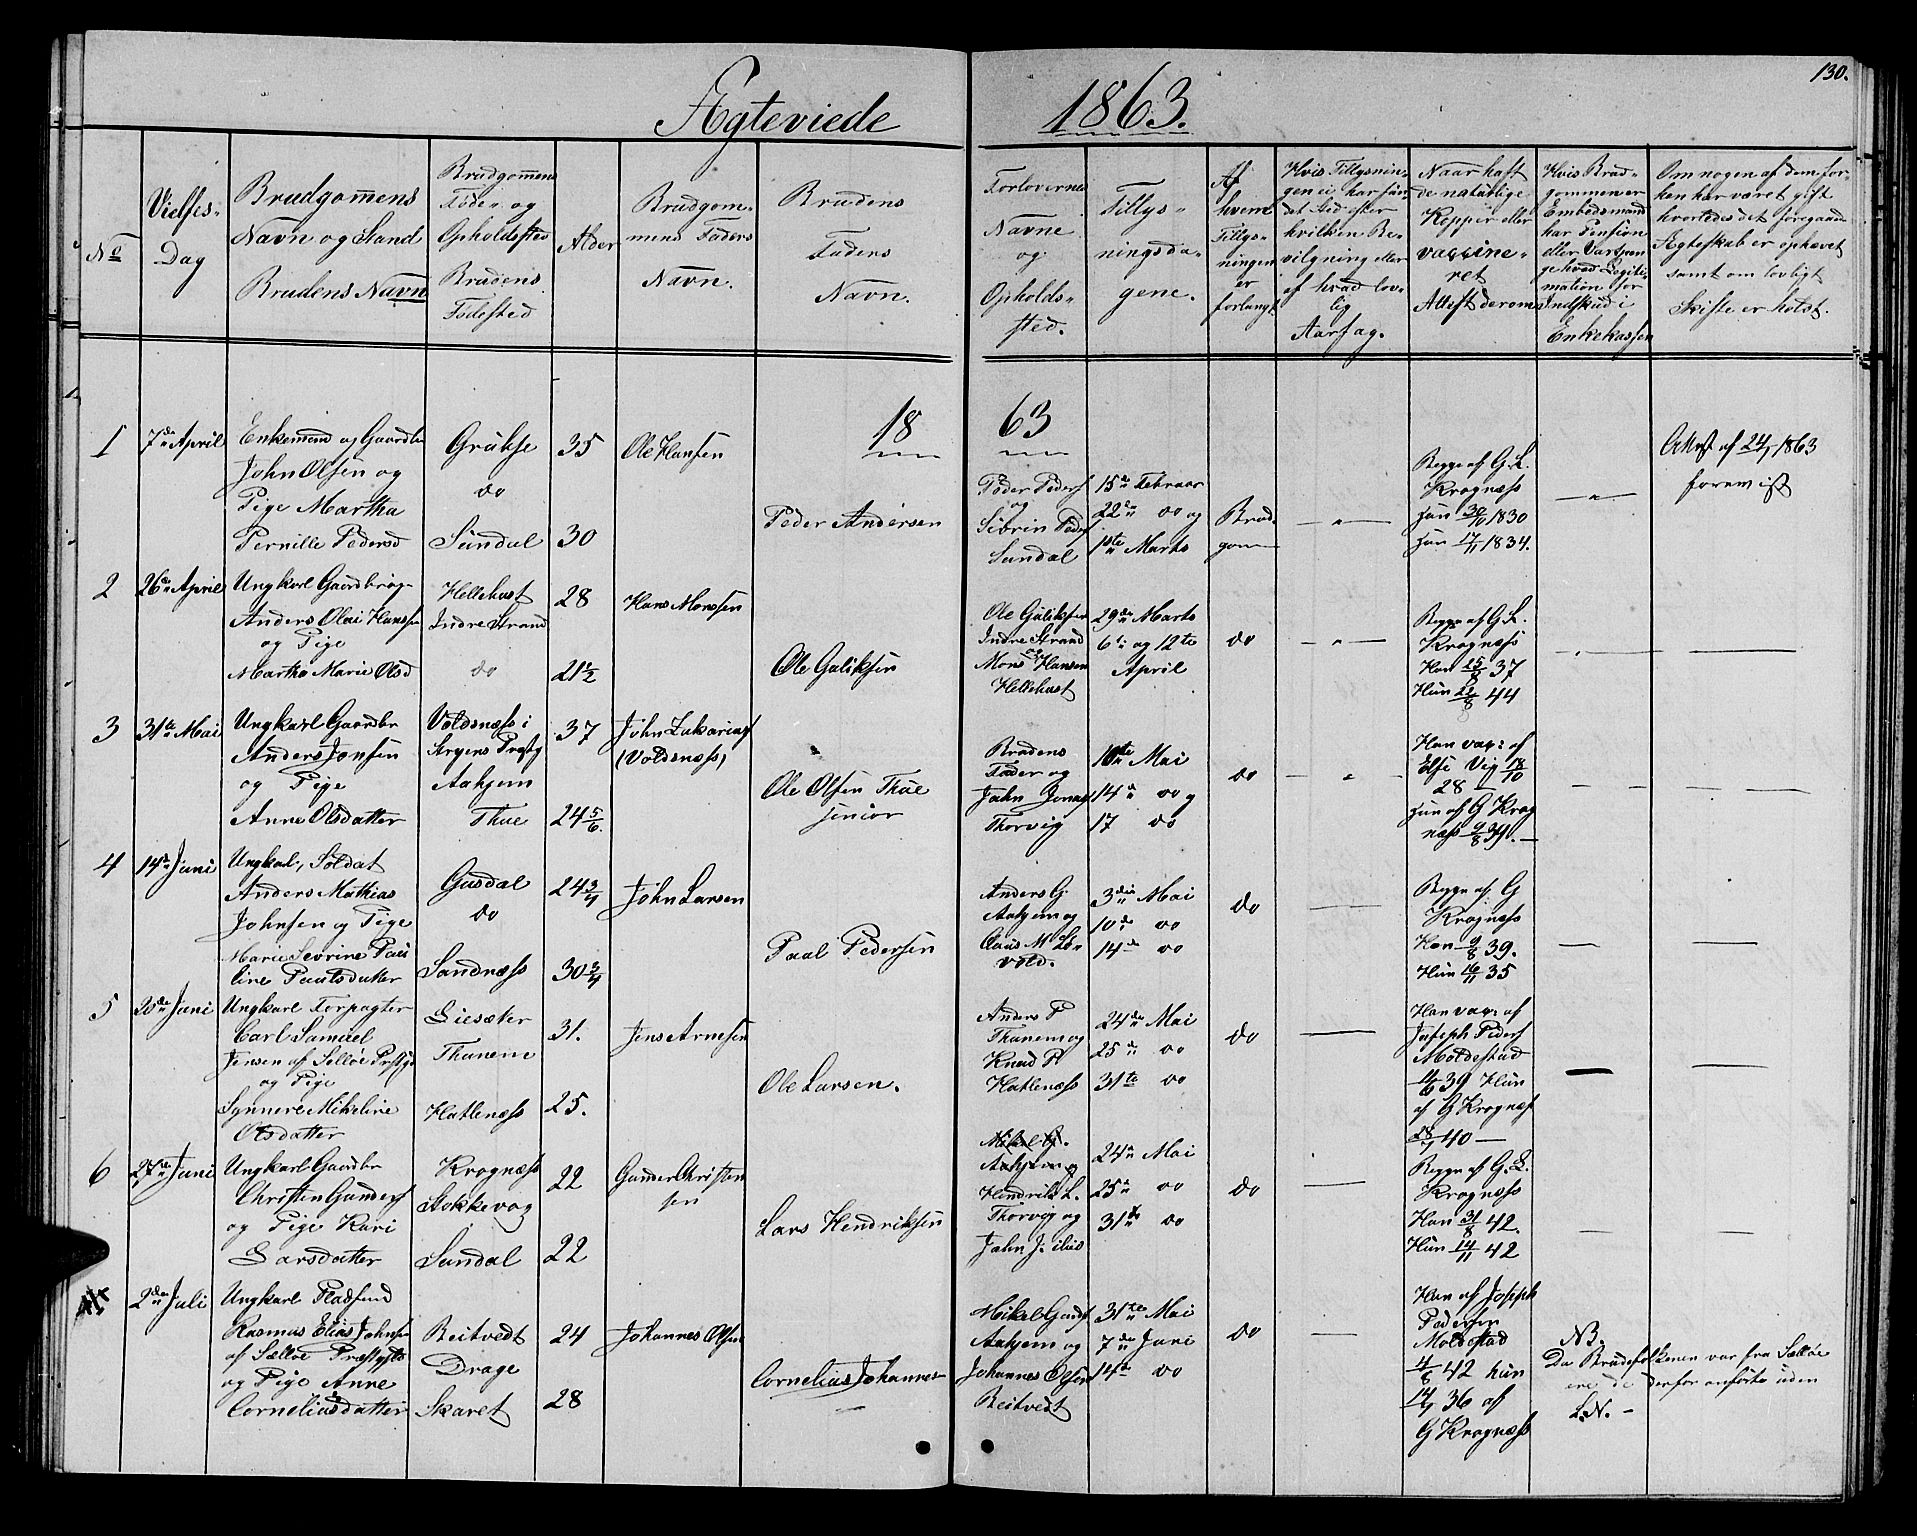 130.
Ægteviede
1863.
No
Vielses-
Dag
Brudgomens
Navn og Stand
Brudens Navn
Brudgomens
Føde- og
Opholdssted
Brudens
Fødested
Alder
Brudgom-
mens Faders
Navn.
Brudens
Faders
Navn.
Forlovernes
Navne
og
Opholds-
sted.
Tillys-
ningsda-
gene.
Af
hvem
Tillys-
ningen
er
forlangt
Hvis Tillysnin-
gen ei har fun-
det Sted efter
hvilken Be-
vilgning eller
af hvad lov-
lig
Aarsag.
Naar haft
de naturlige
Kopper eller
vaccine-
ret
Attest derom
Hvis Brud-
gommen er
Embedsmand
har Pension
eller Vartpen-
ge hvad Legiti-
mation for
Indskud i
Enkekassen
Om nogen af dem for-
hen har været gift
hvorledes det foregaaende
Ægteskab er ophævet
samt om lovligt
Skifte er holdt.
18
63
1
7de April
Enkemand og Gaardbr
John Olsen og
Pige Martha
Pernille Pedersd
do
Sundal
35
30
Ole Hansen
Peder Andersen
og
Sundal
15de Februar
22de do og
1ste Marts
Brud-
gom
Begge af G. L.
Krognæss
30/10 1830
17/11 1834.
Attest af 24/1 1863
forevist
2
26de April
Ungkarl Gaardbrug-
Anders Olai Hanssen
og Pige
Martha Marie Olsd
Indre Strand
do
28
21½
Hans Monssen
Ole Guliksen
Ole Guliksen
Indre Strand
Mons Hansen
29de Marts
6te og 12te
April
do
Begge af G. L.
Krognæss
Han 15/8 37
Hun 22/8 44
3
31te Mai
Ungkarl Gaardbr
Anders Jonsen
og Pige
Anne Olsdatter
Voldsnæss i
Aahjem
Thue
37
24 5/6.
(Voldsnæss)
Ole Olsen Thue
senior
Brudens
Fader og
Thorvig
10te Mai
14de do og
17 do
do
Han vac: af
Elfe Vig 18/10
28
hun af G Krog
næss 9/8 39.
4
14de Juni
Ungkarl, Soldat
Anders Mathias
Johnsen og Pige
Marie Sevrine Pau
line Paulsdatter
Gusdal
do
Sandnæss
24 3/4
30 3/4
John Larsen
Paal Pedersen
Anders G.
Aahjem og
Claus M Le-
vold.
3die Mai
10de do
14de do
do
Begge af G
Krognæss
Han 9/8 39.
Hun 16/11 35
5
20de Juni
Ungkarl Forpagter
Carl Samuel
Jensen af Selløe Præstgj
og Pige
Synnere Mikeline
Olsdatter
Liesæter
Thunem
Hatlenæss
31.
25.
Jens Arnesen
Ole Larsen.
Anders P
Thunem og
Knud P
Hatlenæss
24de Mai
25de do
31te do
do
Han vac: af
Joseph Peders
Moldestad
39 Hun
af G Krognæss
40
6
27de Juni
Ungkarl Gaardbr
Christen Gunders
og Pige Kari
Larsdatter
Krognæss
Stokkevog
Sundal
22
22
Gunder Christen
sen
Lars Hendriksen
Aahjem og
Hendrik L.
Thorvig og
24de Mai
25de do
31te do
do
Begge af G. L.
Krognæss
Han 31/8 42.
Hun 14/11 42
2den Juli
Ungkarl Pladsmd
Rasmus Elias Johnsen
af Sælløe Præstgjeld
og Pige Anne
Corneliusdatter
Reitvedt
Drage
Skaret
24
28
Johannes Olsen
Cornelius Johannes-
Mikel Gunds
Aahjem og
Johannes Olsen
Reitvedt
31te Mai
7de Juni
14de do
do
Han af Joseph
Pedersen
Moldestad
4/6 42 hun
36 af
G Krognæss
NB.
Da Brudefolkenen var fra Sælløe
ere de derfor anførte uden
L.N. -